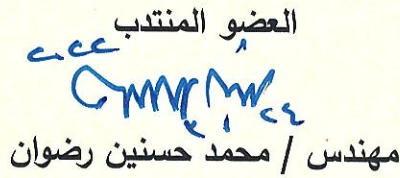 العضو المنتدب
مهندس / محمد حسنين رضوان